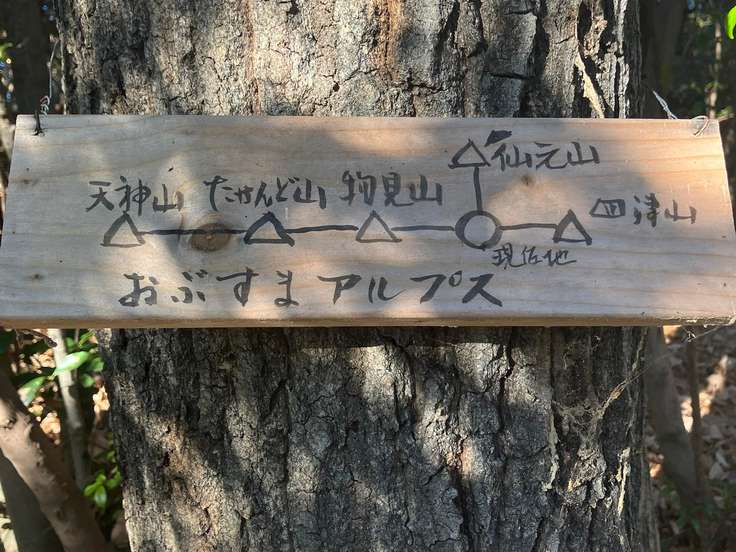 仙元山
天神山 たせんど山 物見山 四津山
現在地
おぶすまアルプス